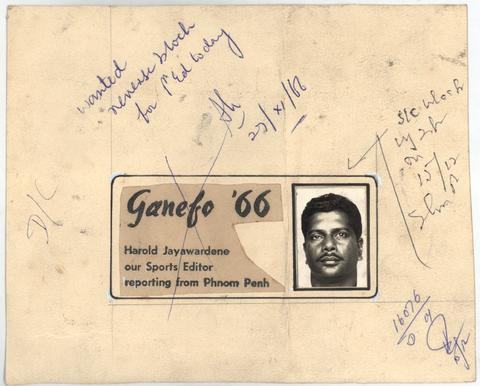 wanted
reverse block
for 1st Ed today
23/XI/66
S/C block
15/12
D/C
Ganefo '66
Harold Jayawardene
our Sports Editor
reporting from Phnom Penh
16076